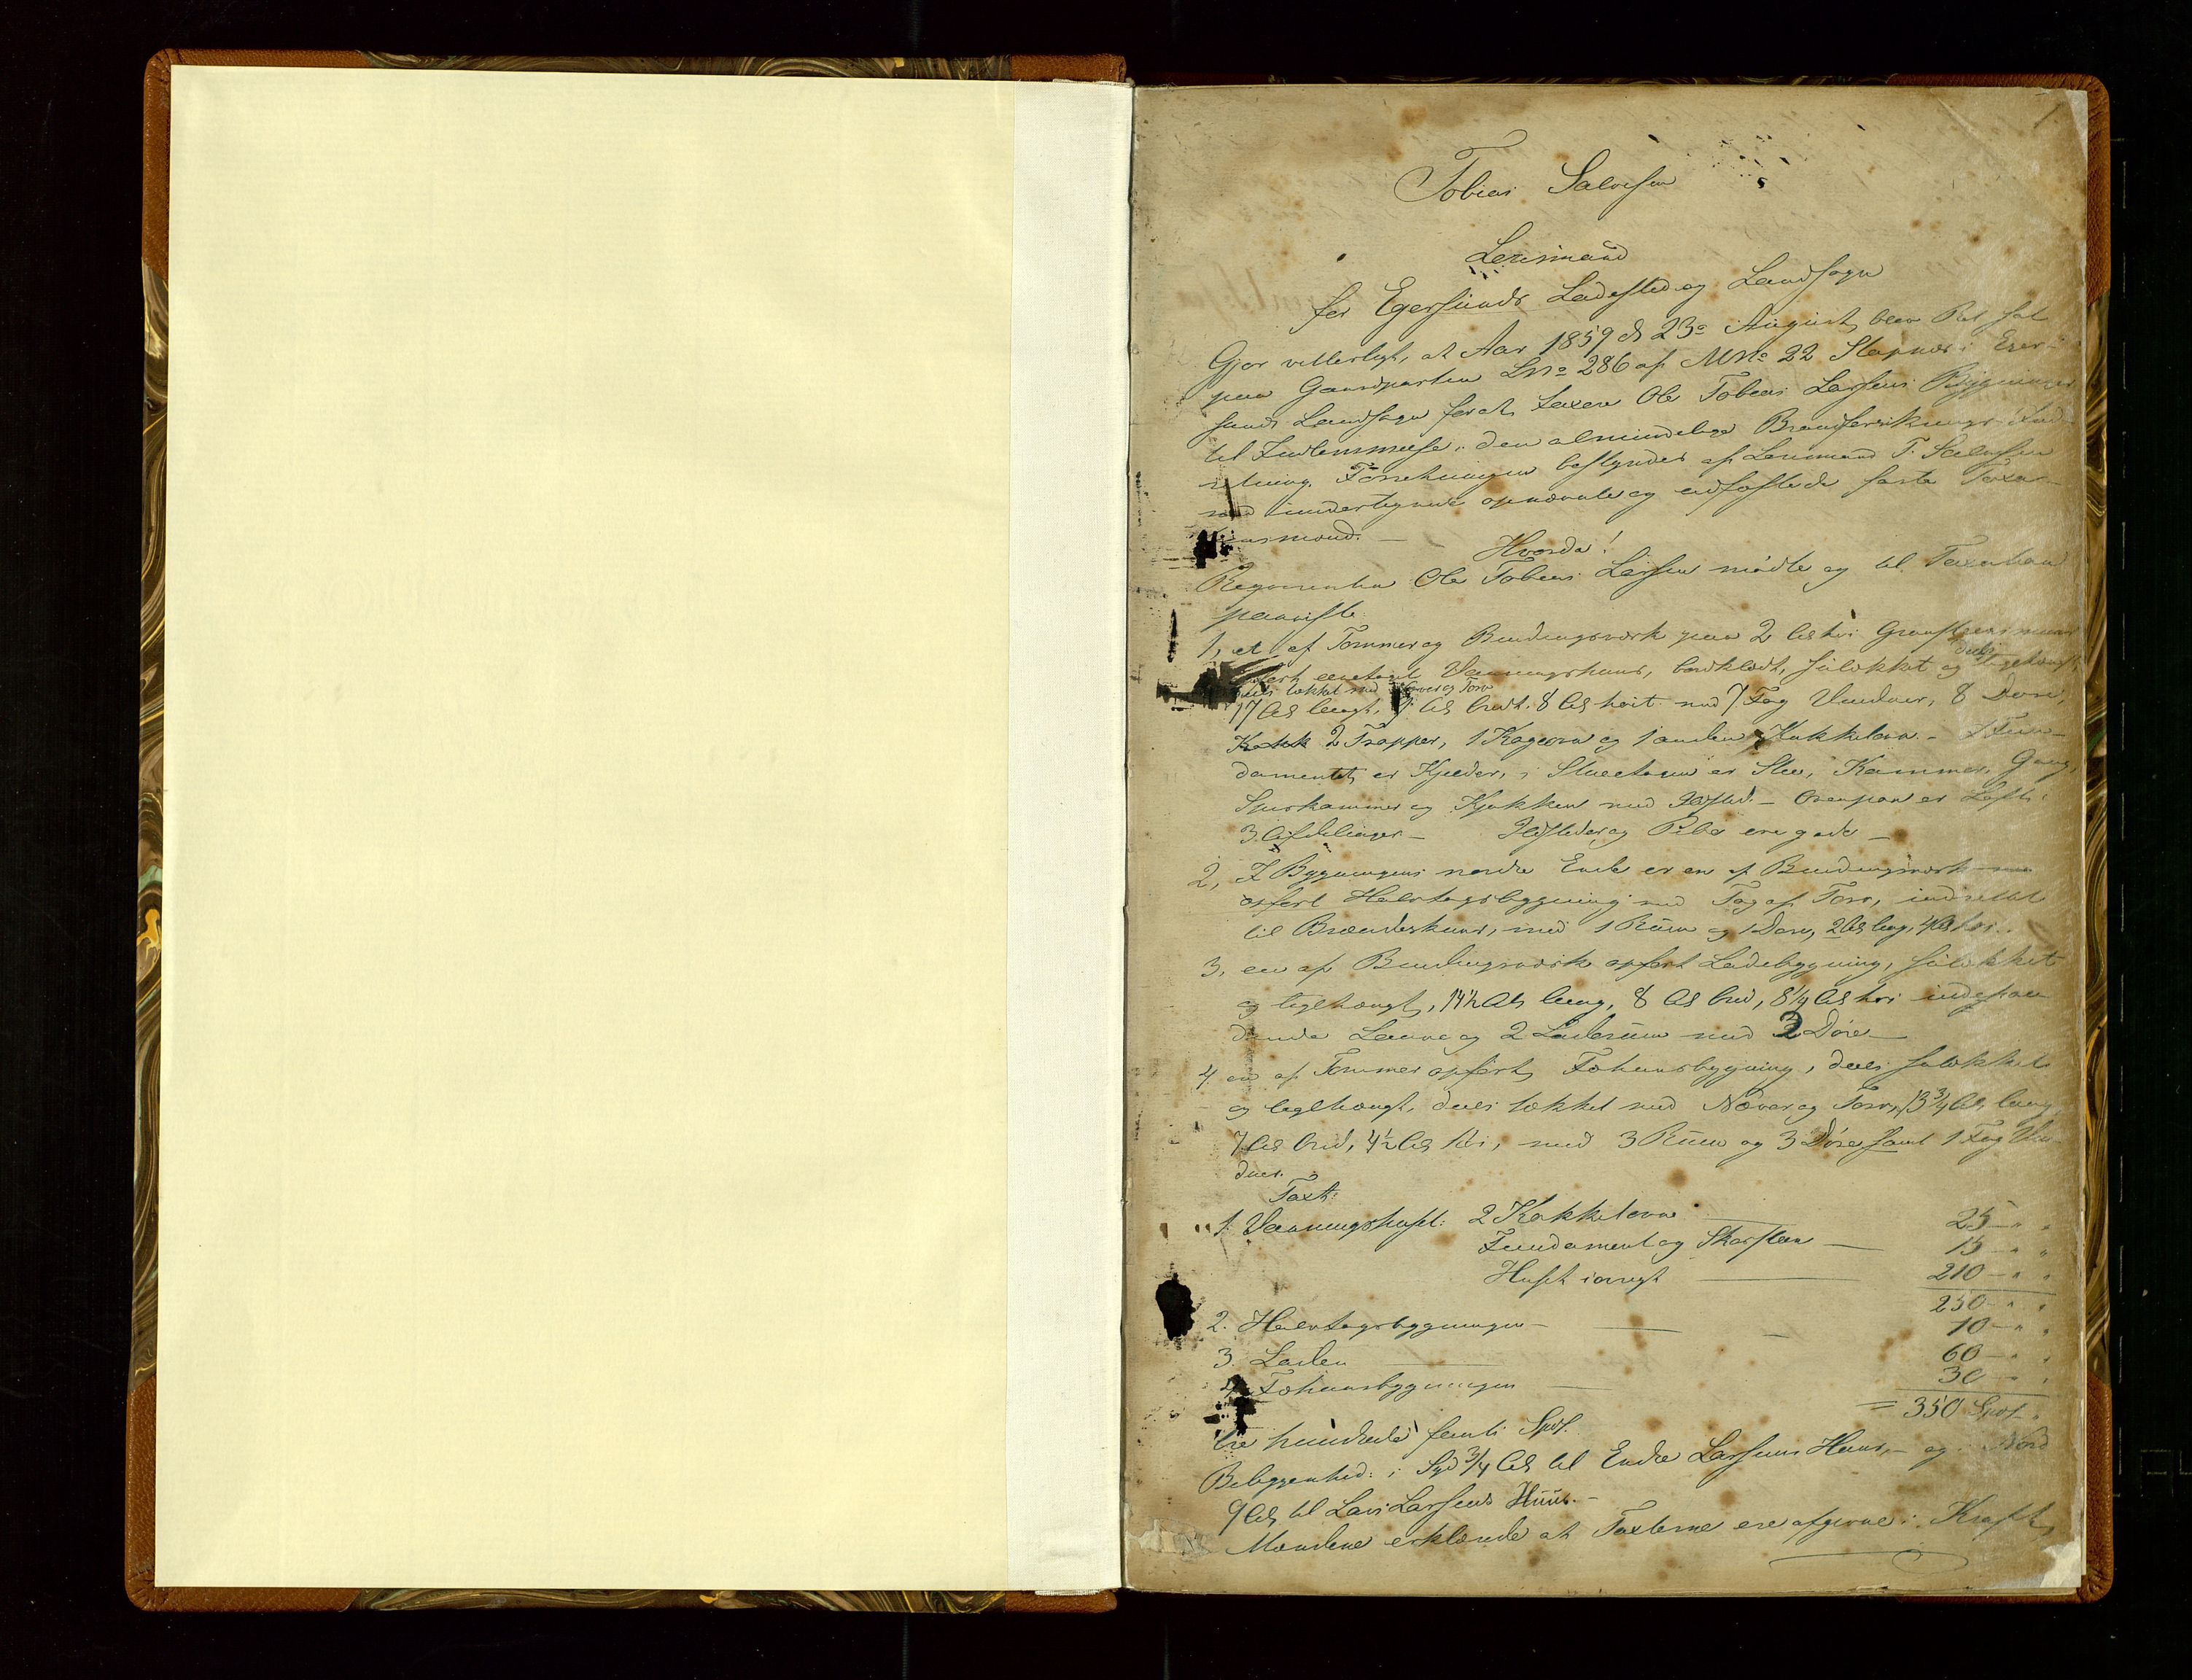 1
Tobias Salvesen
Lensmand
for Egersunds Ladested og Landsogn
Gjør vitterligt, at Aar 1859 d 23de August, blev Ret sat
paa Gaardparten Lno 286 af MNo 22 Slapnæs i Eger-
sunds Landsogn for at taxere Ole Tobias Larsens Bygninger
til Indlemmelse i den almindelige Brandforsikrings-Ind-
retning. Forretningen bestyredes af Lensmand T. Salvesen
med undertegnede opnævnte og edfæstede faste Taxa-
tionsmænd. —
Hvorda!
Reqvirenten Ole Tobias Larsen mødte og til Taxation
paaviste
1, et af Tømmer og Bindingsværk paa 2 Al. høi Graasteensmuur
opført eenetages Vaaningshuus, bordklædt, sulækket og deels teglhængt,
deels tækket med Næver og Torv
17 Al. langt, 9 Al. bredt. 8 Al. høit med 7 Fag Vinduer, 8 Døre,
2 Trapper, 1 Kogeovn og 1 anden Kakkelovn. – I Fun-
damentet er Kjelder, i Stueetagen er Stue, Kammer, Gang,
Spiskammer og Kjøkken med Ildsted. – Ovenpaa er Loft i
3 Afdelinger – Ildsteder og Pibe ere gode –
2, I Bygningens nordre Ende er en af Bindingsværk
opført Halvtagsbygning med Tag af Torv, indrettet
til Brændeskuur, med 1 Rum og 1 Dør, 2 Al. lang, 4 Al. høi.
3, en af Bindingsværk opført Ladebygning, sulækket
og teglhængt, 14½ Al. lang, 8 Al. bred, 8¼ Al. høi indehol-
dende Laave og 2 Laderum med 2 Døre —
4 en af Tømmer opført Fæhuusbygning, deels sulækket
og teglhængt, deels tækket med Næver og Torv, 13¾ Al. lang,
7 Al. bred, 4½ Al. høi, med 3 Rum og 3 Døre samt 1 Fag Vin-
duer.
Taxt:
1. Vaaningshuset: 2 Kakkelovne — 25 – " "
Fundament og Skorsteen — 15 – " "
Huset iøvrigt — 210 – " "
250 – " "
2. Halvtagsbygningen — 10 – " "
3. Laden — 60 – " "
4. Fæhuusbygningen — 30 – " "
= 350 Spd. "
tre hundrede femti Spd.
Beliggenhed: i Syd ¾ Al. til Endre Larsens Huus, – og i Nord
9 Al. til Lars Larsens Huus. –
Mændene erklærede at Taxterne ere afgivne i Kraft